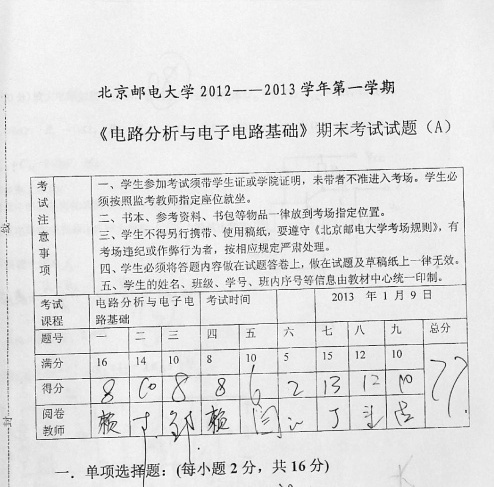 北京邮电大学2012——2013学年第一学期
《电路分析与电子电路基础》期末考试试题（A）
考试注意事项
一、学生参加考试须带学生证或学院证明，未带者不准进入考场。学生必
须按照监考教师指定座位就坐。
二、书本、参考资料、书包等物品一律放到考场指定位置。
三、学生不得另行携带、使用稿纸，要遵守《北京邮电大学考场规则》，有
考场违纪或作弊行为者，按相应规定严肃处理。
四、学生必须将答题内容做在试题答卷上，做在试题及草稿纸上一律无效。
五、学生的姓名、班级、学号、班内序号等信息由教材中心统一印制。
考试课程 电路分析与电子电路基础 考试时间 2013 年 1 月 9 日
题号 一 二 三 四 五 六 七 八 九 总分
满分 16 14 10 8 10 5 15 12 10
得分 8 10 8 8 6 2 13 12 10 77
阅卷教师 赖 丁 邹 赖 闫 丁
一．单项选择题：(每小题 2 分，共 16 分)